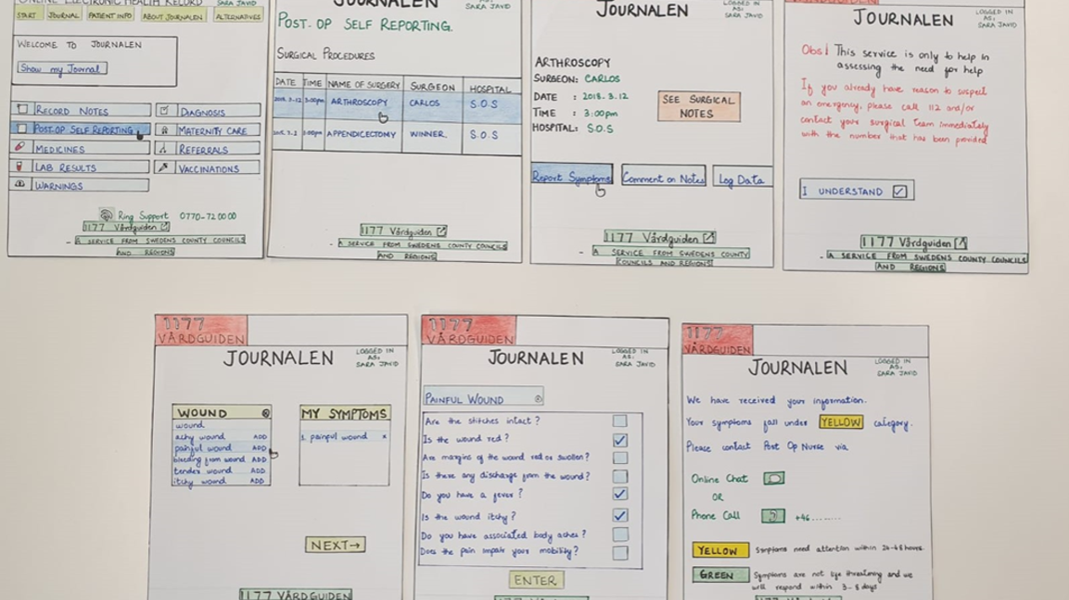 ONLINE ELECTRONIC HEALTH RECORD
SARA JAVID
START JOURNAL PATIENT INFO ABOUT JOURNALEN ALTERNATIVES
WELCOME TO JOURNALEN
Show my Journal
RECORD NOTES
DIAGNOSIS
POST-OP SELF REPORTING
MATERNITY CARE
MEDICINES
REFERRALS
LAB RESULTS
VACCINATIONS
WARNINGS
Ring Support 0770-72 00 00
1177 Vårdguiden
- A SERVICE FROM SWEDENS COUNTY COUNCILS
AND REGIONS
JOURNALEN
LOGGED IN
AS:
SARA JAVID
POST. OP SELF REPORTING.
SURGICAL PROCEDURES
DATE TIME NAME OF SURGERY SURGEON HOSPITAL
3:00pm ARTHROSCOPY CARLOS S.O.S
APPENDICECTOMY WINNER. S.O.S
1177 Vårdguiden
- A SERVICE FROM SWEDENS COUNTY COUNCILS
AND REGIONS
JOURNALEN
LOGGED IN
AS:
SARA JAVID
ARTHROSCOPY
SURGEON: CARLOS
DATE : 2018. 3.12
TIME : 3:00pm
HOSPITAL: S.O.S
SEE SURGICAL
NOTES
Report Symptoms
Comment on Notes
Log Data
1177 Vårdguiden
- A SERVICE FROM SWEDENS COUNTY
COUNCILS AND REGIONS
JOURNALEN
LOGGED IN
AS:
SARA JAVID
Obs! This service is only to help in
assessing the need for help
If you already have reason to suspect
an emergency, please call 112 and/or
contact your surgical team immediately
with the number that has been provided
I UNDERSTAND
1177 Vårdguiden
- A SERVICE FROM SWEDENS COUNTY COUNCILS
AND REGIONS
1177
VÅRDGUIDEN
JOURNALEN
LOGGED IN
AS:
SARA JAVID
WOUND
wound
achy wound ADD
painful wound ADD
bleeding from wound ADD
tender wound ADD
itchy wound ADD
MY SYMPTOMS
1. painful wound x
NEXT→
1177 VÅRDGUIDEN
1177
VÅRDGUIDEN
JOURNALEN
LOGGED IN
AS:
SARA JAVID
PAINFUL WOUND
Are the stitches intact ?
Is the wound red ?
Are margins of the wound red or swollen?
Is there any discharge from the wound?
Do you have a fever ?
Is the wound itchy ?
Do you have associated body aches?
Does the pain impair your mobility?
ENTER
1177
VÅRDGUIDEN
JOURNALEN
LOGGED IN
AS:
SARA JAVID
We have received your information.
Your symptoms fall under YELLOW category.
Please contact Post Op Nurse via
Online Chat
OR
Phone Call +46.........
YELLOW Symptoms need attention within 24-48 hours.
GREEN Symptoms are not life threatening and we
will respond within 3-5 days